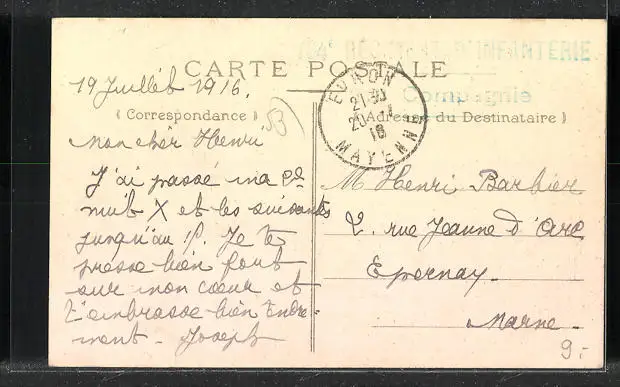 104e RÉGIMENT D'INFANTERIE
CARTE POSTALE
Compagnie
EVRON
21-30
20-7
16
MAYENNE
19 Juillet 1916.
( Correspondance )
( Adresse du Destinataire )
Mon chér Henri
J'ai passé ma
nuit X et les suivantes
jusqu'au Je te
presse bien fort
sur mon cœur et
t'embrasse bien tendre-
ment - Joseph
M Henri Barbier
2. rue Jeanne d'Arc
Epernay.
Marne.
9.-